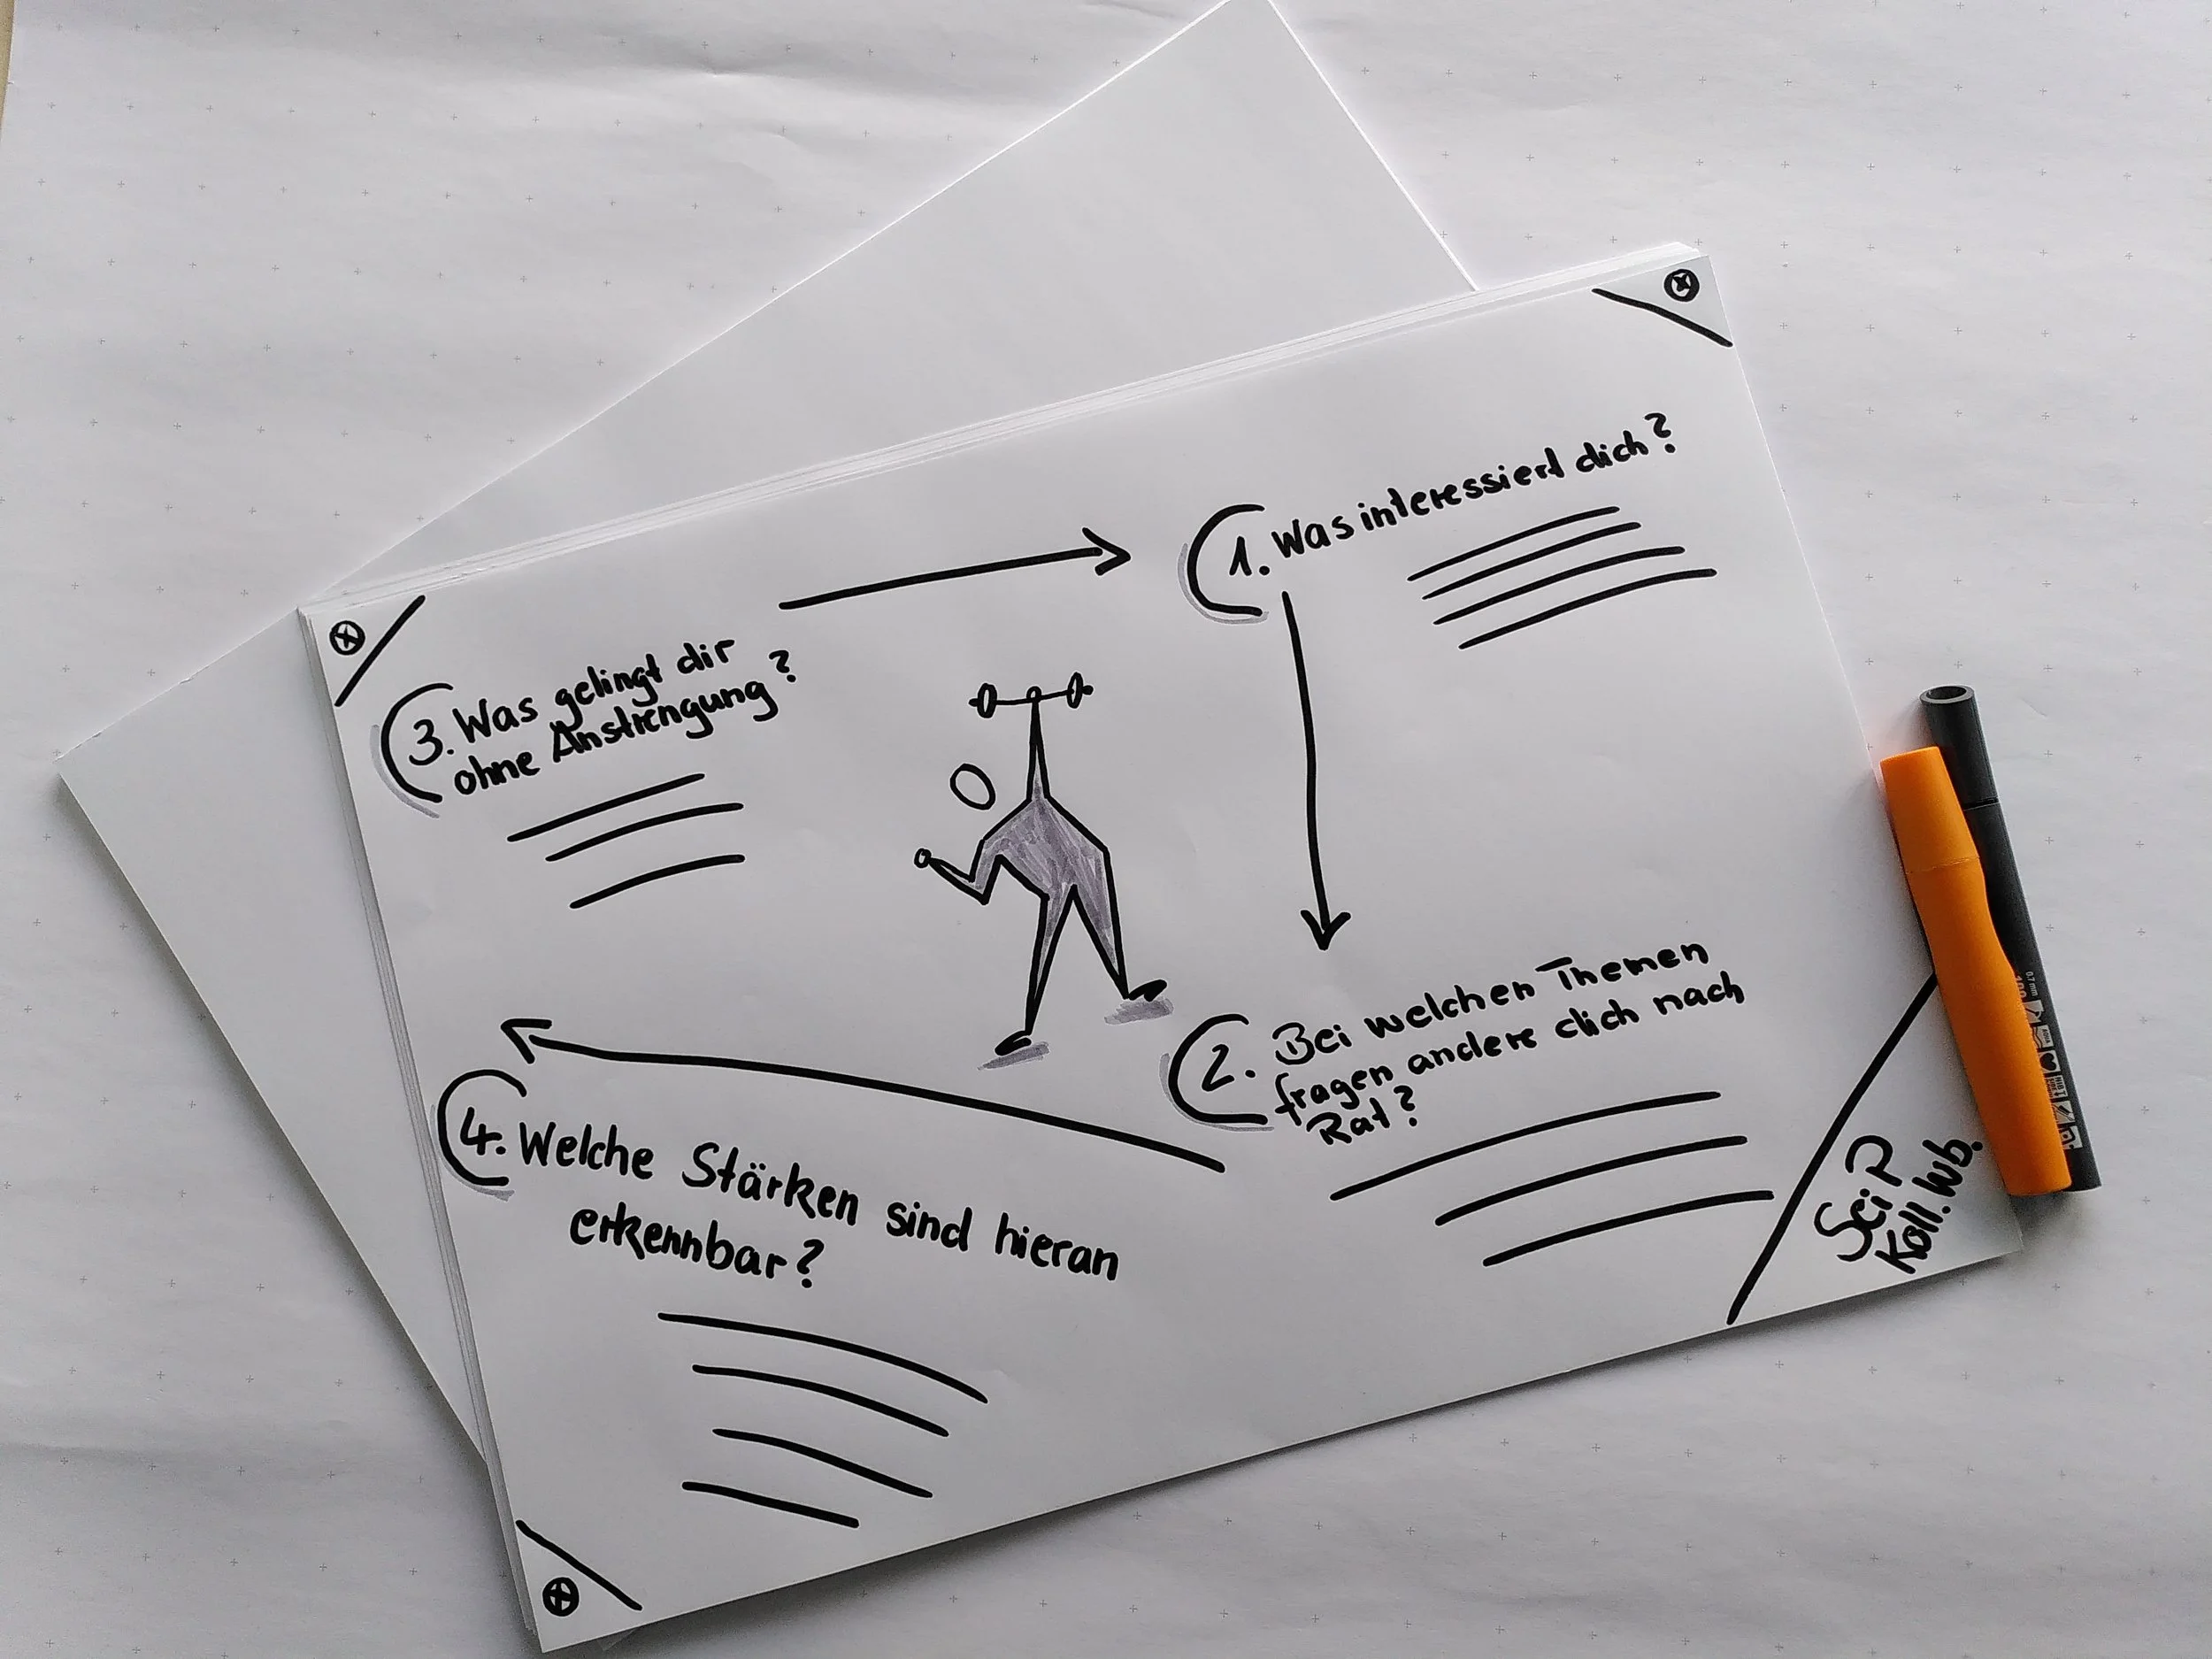 1. Was interessiert dich?
2. Bei welchen Themen
fragen andere dich nach
Rat?
3. Was gelingt dir
ohne Anstrengung?
4. Welche Stärken sind hieran
erkennbar?
SciP
Koll. Wb.
0.7 mm